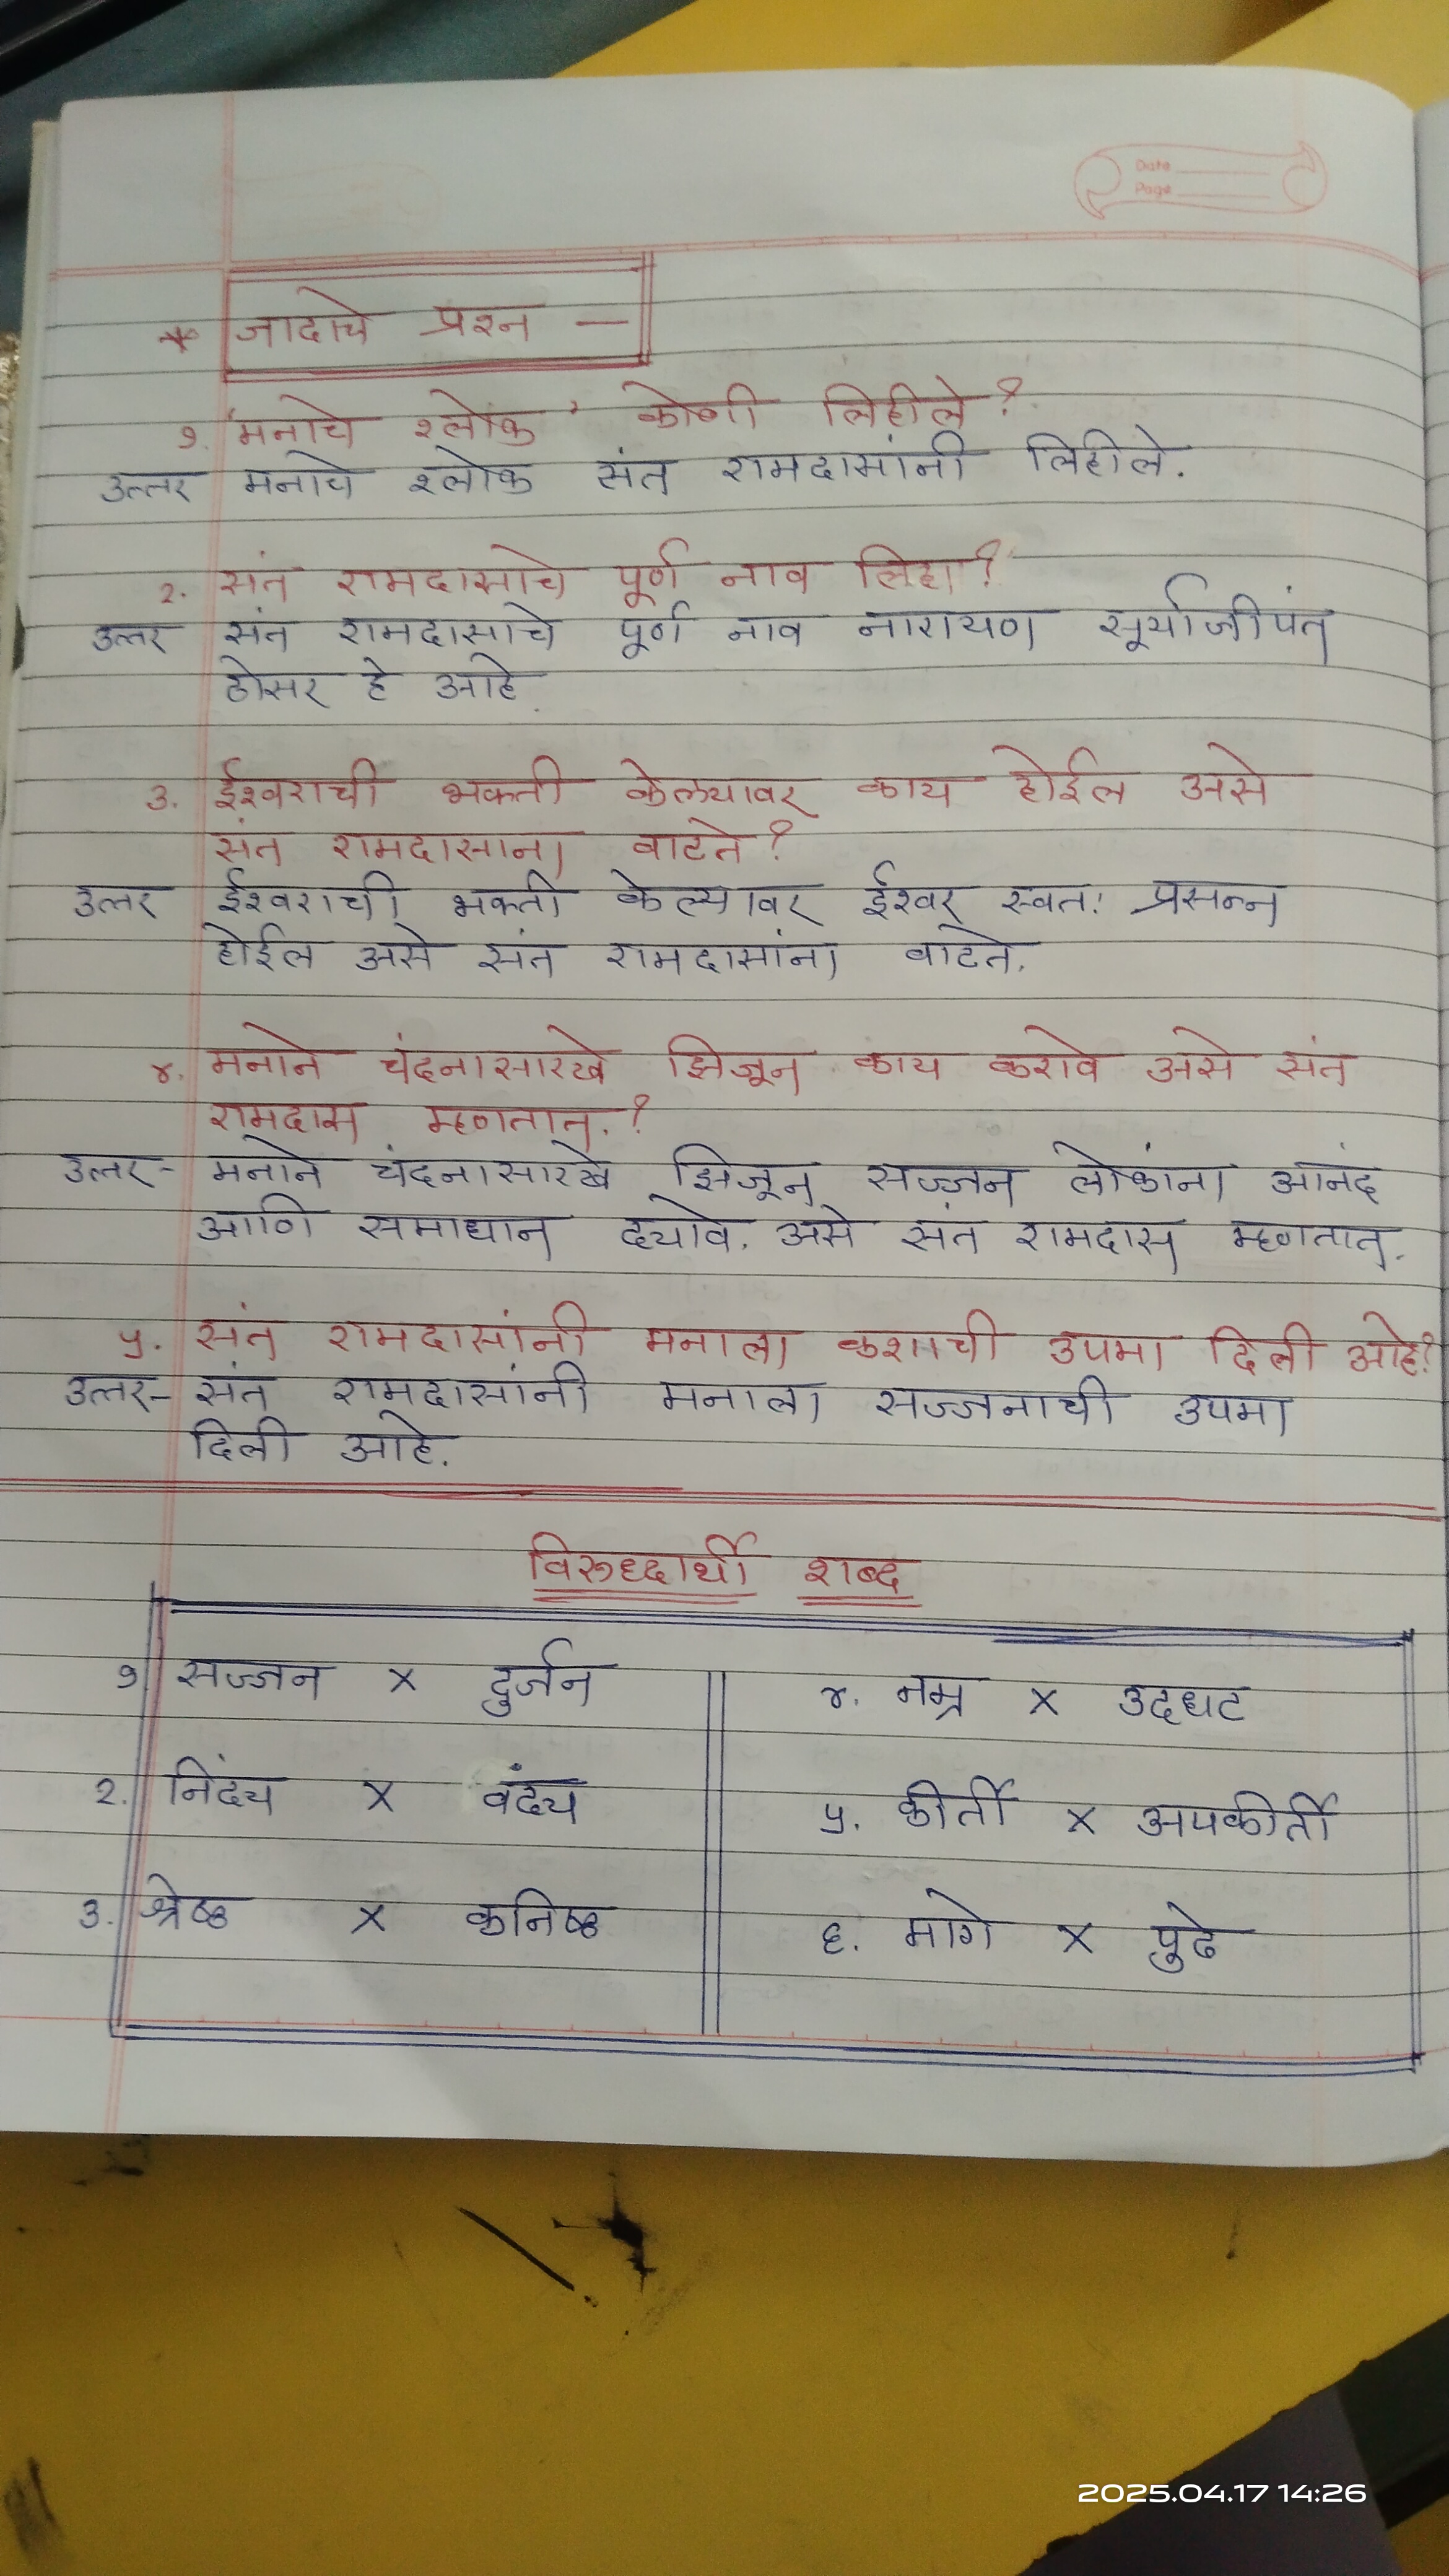 Date
Page
* जादाचे प्रश्न —
१. 'मनाचे श्लोक' कोणी लिहीले?
उत्तर मनाचे श्लोक संत रामदासांनी लिहीले.
२. संत रामदासाचे पूर्ण नाव लिहा?
उत्तर संत रामदासाचे पूर्ण नाव नारायण सूर्याजीपंत
ठोसर हे आहे.
३. ईश्वराची भक्ती केल्यावर काय होईल असे
संत रामदासाना वाटते?
उत्तर ईश्वराची भक्ती केल्यावर ईश्वर स्वतः प्रसन्न
होईल असे संत रामदासांना वाटते.
४. मनाने चंदनासारखे झिजून काय करावे असे संत
रामदास म्हणतात.?
उत्तर- मनाने चंदनासारखे झिजून सज्जन लोकांना आनंद
आणि समाधान दयावे. असे संत रामदास म्हणतात.
५. संत रामदासांनी मनाला कशाची उपमा दिली आहे?
उत्तर- संत रामदासांनी मनाला सज्जनाची उपमा
दिली आहे.
विरुध्दार्थी शब्द
१ सज्जन x दुर्जन
२. निंदय x वंदय
३. श्रेष्ठ x कनिष्ठ
४. नम्र x उदधट
५. कीर्ती x अपकीर्ती
६. मागे x पुढे
2025.04.17 14:26